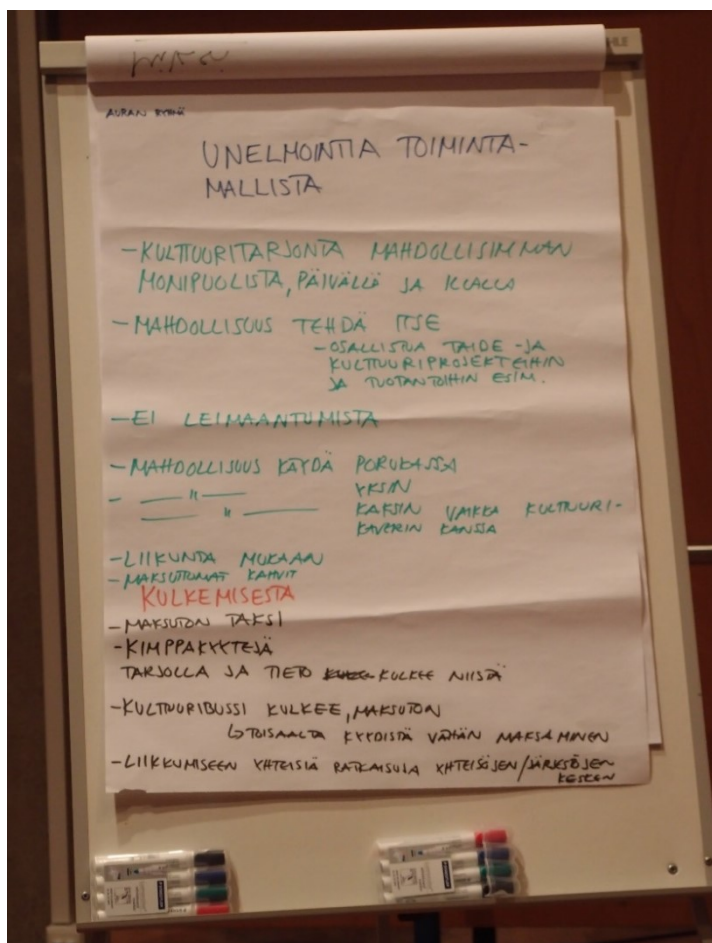 HLE
AURAN RYHMÄ
UNELMOINTIA TOIMINTA-
MALLISTA
-KULTTUURITARJONTA MAHDOLLISIMMAN
MONIPUOLISTA, PÄIVÄLLÄ JA ILLALLA
-MAHDOLLISUUS TEHDÄ ITSE
-OSALLISTUA TAIDE -JA
KULTTUURIPROJEKTEIHIN
JA TUOTANTOIHIN ESIM.
-EI LEIMAANTUMISTA
-MAHDOLLISUUS KÄYDÄ PORUKASSA
- —"— YKSIN
—"— KAKSIN VAIKKA KULTTUURI-
KAVERIN KANSSA
-LIIKUNTA MUKAAN
-MAKSUTTOMAT KAHVIT
KULKEMISESTA
-MAKSUTON TAKSI
-KIMPPAKYYTEJÄ
TARJOLLA JA TIETO KULKEE NIISTÄ
-KULTTUURIBUSSI KULKEE, MAKSUTON
↳TOISAALTA KYYDISTÄ VÄHÄN MAKSAMINEN
-LIIKKUMISEEN YHTEISIÄ RATKAISUJA YHTEISÖJEN/JÄRJESTÖJEN
KESKEN